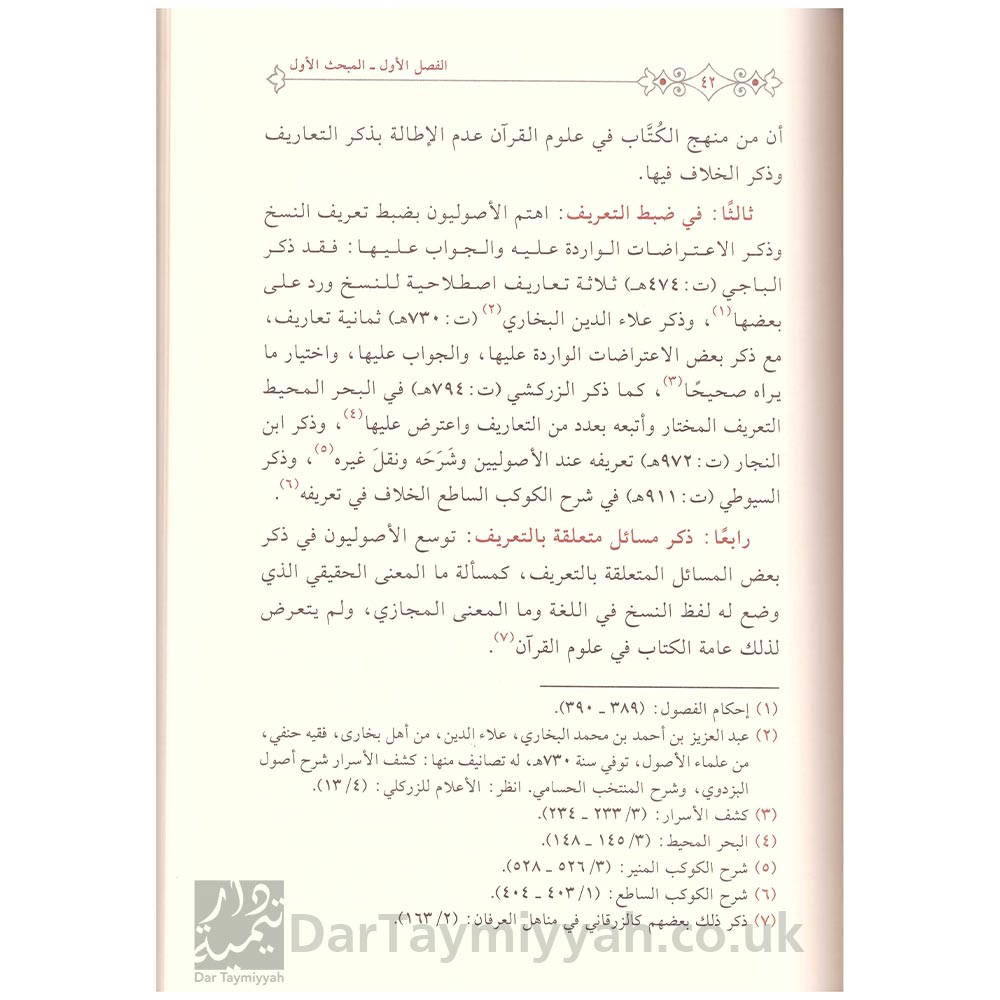 الفصل الأول ـ المبحث الأول
٤٢
أن من منهج الكُتَّاب في علوم القرآن عدم الإطالة بذكر التعاريف
وذكر الخلاف فيها.
ثالثًا: في ضبط التعريف: اهتم الأصوليون بضبط تعريف النسخ
وذكر الاعتراضات الواردة عليه والجواب عليها: فقد ذكر
الباجي (ت: ٤٧٤هـ) ثلاثة تعاريف اصطلاحية للنسخ ورد على
بعضها(١)، وذكر علاء الدين البخاري(٢) (ت: ٧٣٠هـ) ثمانية تعاريف،
مع ذكر بعض الاعتراضات الواردة عليها، والجواب عليها، واختيار ما
يراه صحيحًا(٣)، كما ذكر الزركشي (ت: ٧٩٤هـ) في البحر المحيط
التعريف المختار وأتبعه بعدد من التعاريف واعترض عليها(٤)، وذكر ابن
النجار (ت: ٩٧٢هـ) تعريفه عند الأصوليين وشَرَحَه ونقلَ غيره(٥)، وذكر
السيوطي (ت: ٩١١هـ) في شرح الكوكب الساطع الخلاف في تعريفه(٦).
رابعًا: ذكر مسائل متعلقة بالتعريف: توسع الأصوليون في ذكر
بعض المسائل المتعلقة بالتعريف، كمسألة ما المعنى الحقيقي الذي
وضع له لفظ النسخ في اللغة وما المعنى المجازي، ولم يتعرض
لذلك عامة الكتاب في علوم القرآن(٧).
(١) إحكام الفصول: (٣٨٩ ـ ٣٩٠).
(٢) عبد العزيز بن أحمد بن محمد البخاري، علاء الدين، من أهل بخارى، فقيه حنفي،
من علماء الأصول، توفي سنة ٧٣٠هـ، له تصانيف منها: كشف الأسرار شرح أصول
البزدوي، وشرح المنتخب الحسامي. انظر: الأعلام للزركلي: (٤/ ١٣).
(٣) كشف الأسرار: (٣/ ٢٣٣ ـ ٢٣٤).
(٤) البحر المحيط: (٣/ ١٤٥ ـ ١٤٨).
(٥) شرح الكوكب المنير: (٣/ ٥٢٦ ـ ٥٢٨).
(٦) شرح الكوكب الساطع: (١/ ٤٠٣ ـ ٤٠٤).
(٧) ذكر ذلك بعضهم كالزرقاني في مناهل العرفان: (٢/ ١٦٣).
دار تيمية
Dar Taymiyyah
DarTaymiyyah.co.uk